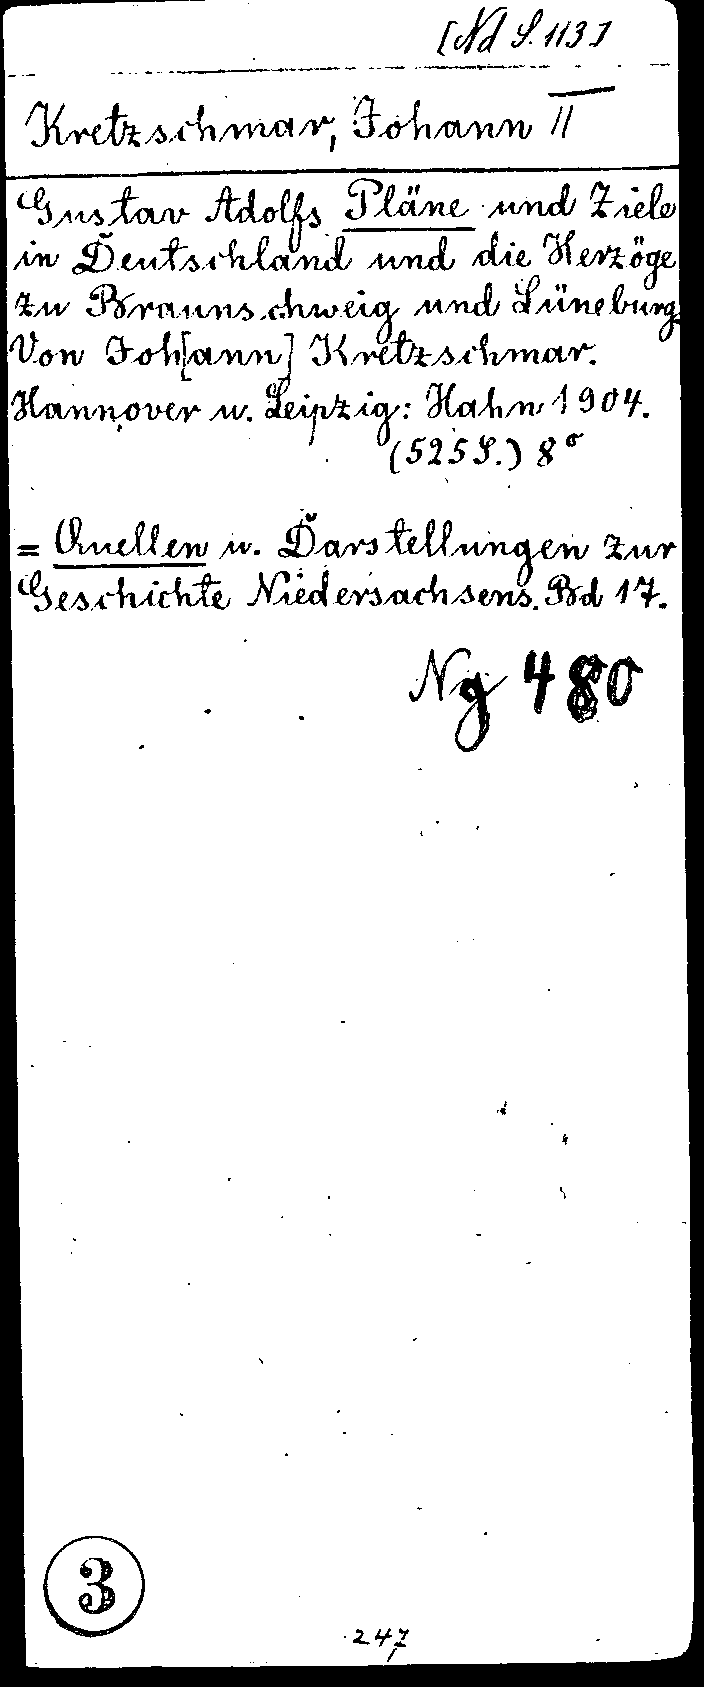 [Nd S. 113]
Kretzschmar, Johann II
Gustav Adolfs Pläne und Ziele
in Deutschland und die Herzöge
zu Braunschweig und Lüneburg.
Von Joh[ann] Kretzschmar.
Hannover u. Leipzig: Hahn 1904.
(525 S.) 8°
= Quellen u. Darstellungen zur
Geschichte Niedersachsens. Bd 17.
Ng 480
3
247